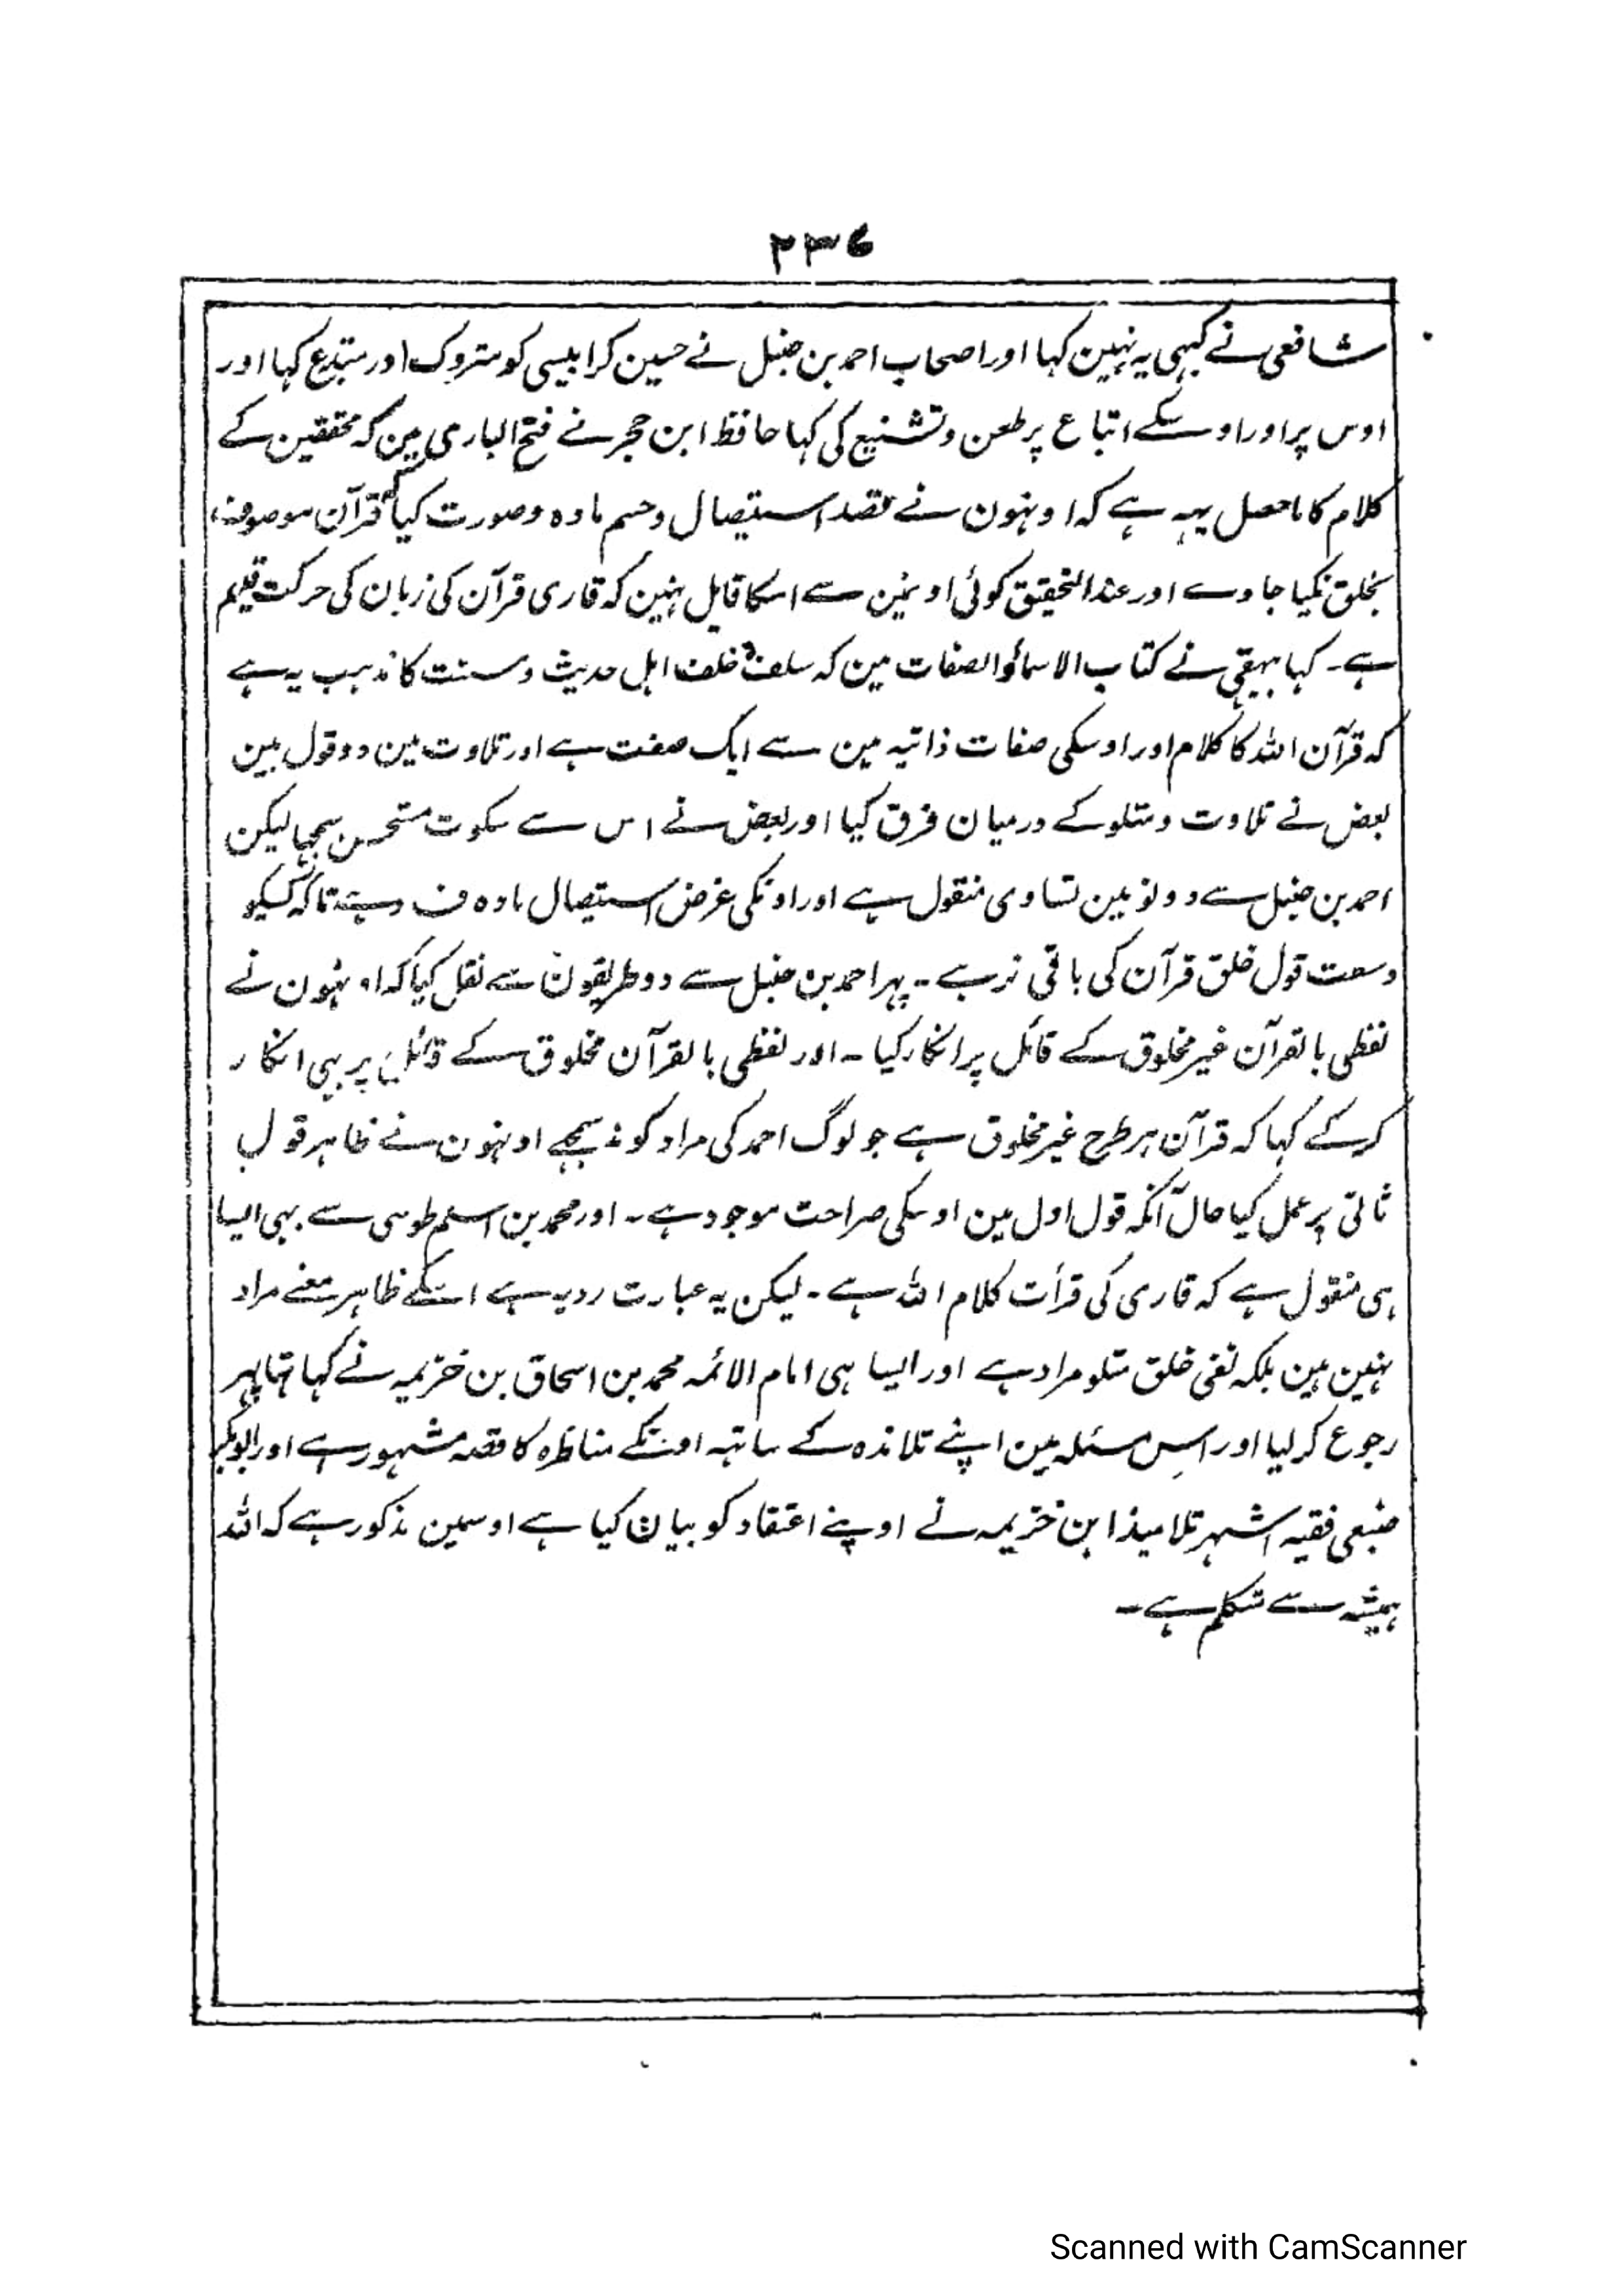 ۲۳۷
شافعی نے کبہی یہ نہین کہا اور اصحاب احمد بن حنبل نے حسین کرابیسی کو متروک اور مبتدع کہا اور
اوس پر اور اوسکے اتباع پر طعن وتشنیع کی کہا حافظ ابن حجر نے فتح الباری مین کہ محققین کے
کلام کا ماحصل یہہ ہے کہ اونہون نے قصد استیصال وحسم مادہ وصورت کیا قرآن موصوف
بخلق نکیا جاوے اور عند التحقیق کوئی اونمین سے اسکا قایل نہین کہ قاری قرآن کی زبان کی حرکت قدیم
ہے۔ کہا بیہقی نے کتاب الاسماء والصفات مین کہ سلف وخلف اہل حدیث وسنت کا مذہب یہ ہے
کہ قرآن اللہ کا کلام اور اوسکی صفات ذاتیہ مین سے ایک صفت ہے اور تلاوت مین دو قول ہین
بعض نے تلاوت ومتلو کے درمیان فرق کیا اور بعض نے اس سے سکوت مستحسن سمجہا لیکن
احمد بن حنبل سے دونو مین تساوی منقول ہے اور اونکی غرض استیصال مادہ ف تاکہ کسیکو
وسعت قول خلق قرآن کی باقی نرہے۔ پہر احمد بن حنبل سے دو طریقون سے نقل کیا کہ اونہون نے
لفظی بالقرآن غیر مخلوق کے قائل پر انکار کیا۔ اور لفظی بالقرآن مخلوق کے قائل پر بہی انکار
کرکے کہا کہ قرآن ہر طرح غیر مخلوق ہے جو لوگ احمد کی مراد کو نہ سمجہے اونہون نے ظاہر قول
ثانی پر عمل کیا حال آنکہ قول اول مین اوسکی صراحت موجود ہے۔ اور محمد بن اسلم طوسی سے بہی ایسا
ہی منقول ہے کہ قاری کی قرأت کلام اللہ ہے۔ لیکن یہ عبارت ردیہ ہے اسکے ظاہر معنے مراد
نہین ہین بلکہ نفی خلق متلو مراد ہے اور ایسا ہی امام الائمہ محمد بن اسحاق بن خزیمہ نے کہا تہا پہر
رجوع کر لیا اور اس مسئلہ مین اپنے تلامذہ کے ساتہہ اونکے مناظرہ کا قصہ مشہور ہے اور ابوبکر
ضبعی فقیہ اشہر تلامیذ ابن خزیمہ نے اوپنے اعتقاد کو بیان کیا ہے اوسمین مذکور ہے کہ اللہ
ہمیشہ سے متکلم ہے۔
Scanned with CamScanner